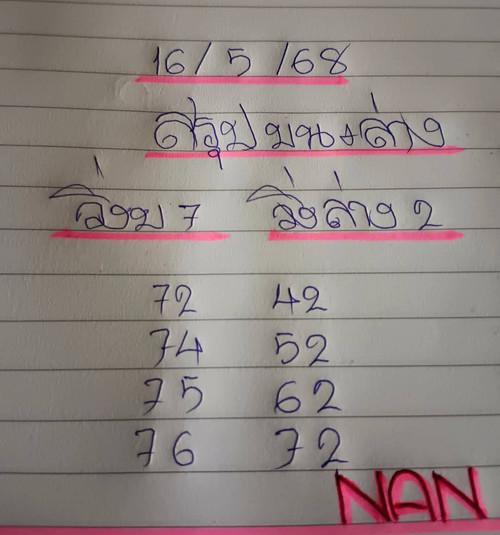 16/5/68
สรุป บน+ล่าง
วิ่งบน 7 วิ่งล่าง 2
72 42
74 52
75 62
76 72
NAN